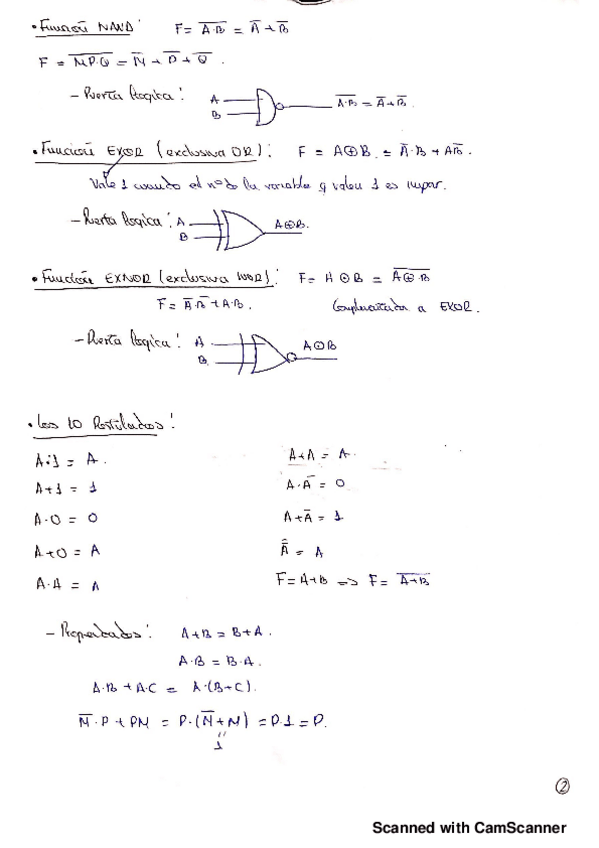 • Función NAND: F = \overline{A·B} = \overline{A} + \overline{B}
F = \overline{M·P·Q} = \overline{M} + \overline{P} + \overline{Q}.
- Puerta lógica: A B \overline{A·B} = \overline{A} + \overline{B}.
• Función EXOR (exclusiva OR): F = A⊕B. = \overline{A}·B + A\overline{B}.
Vale 1 cuando el nº de la variable q valen 1 es impar.
- Puerta lógica: A B A⊕B.
• Función EXNOR (exclusiva NOR): F = A ⊙ B = \overline{A⊕B}
F = \overline{A}·\overline{B} + A·B. a EXOR.
- Puerta lógica: A B A⊙B
• Los 10 Postulados:
A·1 = A. A+A = A.
A+1 = 1 A·\overline{A} = 0
A·0 = 0 A+\overline{A} = 1
A+0 = A \overline{\overline{A}} = A
A·A = A F = A+B => \overline{F} = \overline{A+B}
- Propiedades: A+B = B+A.
A·B = B·A.
A·B + A·C = A·(B+C).
\overline{M}·P + PM = P·(\overline{M}+M) = P·1 = P.
"
1
2
Scanned with CamScanner